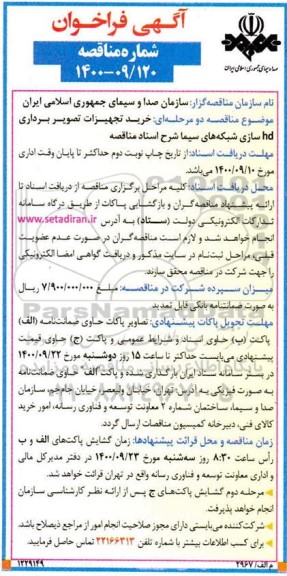 آگهی فراخوان
شماره مناقصه
۱۴۰۰-۰۹/۱۲۰
صدا و سیمای جمهوری اسلامی ایران
نام سازمان مناقصه‌گزار: سازمان صدا و سیمای جمهوری اسلامی ایران
موضوع مناقصه دو مرحله‌ای: خرید تجهیزات تصویر برداری
hd سازی شبکه‌های سیما شرح اسناد مناقصه
مهلت دریافت اسناد: از تاریخ چاپ نوبت دوم حداکثر تا پایان وقت اداری
مورخ ۱۴۰۰/۰۹/۱۰ می‌باشد.
محل دریافت اسناد: کلیه مراحل برگزاری مناقصه از دریافت اسناد تا
ارائه پیشنهاد مناقصه‌گران و بازگشایی پاکات از طریق درگاه سامانه
تدارکات الکترونیکی دولت (ستاد) به آدرس www.setadiran.ir
انجام خواهد شد و لازم است مناقصه‌گران در صورت عدم عضویت
قبلی، مراحل ثبت‌نام در سایت مذکور و دریافت گواهی امضا الکترونیکی
را جهت شرکت در مناقصه محقق سازند.
میزان سپرده شرکت در مناقصه: مبلغ ۷/۹۰۰/۰۰۰/۰۰۰ ریال
به صورت ضمانتنامه بانکی قابل تمدید
مهلت تحویل پاکات پیشنهادی: تصاویر پاکات حاوی ضمانتنامه (الف)
پاکت (ب) حاوی اسناد و شرایط عمومی و پاکت (ج) حاوی قیمت
پیشنهادی می‌بایست حداکثر تا ساعت ۱۵ روز دوشنبه مورخ ۱۴۰۰/۰۹/۲۲
در بستر سامانه ستاد ایران بارگذاری شده و پاکت الف حاوی ضمانتنامه
به صورت فیزیکی به آدرس: تهران، خیابان ولیعصر، خیابان جام‌جم، سازمان
صدا و سیما، ساختمان شماره ۲ معاونت توسعه و فناوری رسانه، امور خرید
کالای فنی، دبیرخانه کمیسیون مناقصات ارسال گردد.
زمان مناقصه و محل قرائت پیشنهادها: زمان گشایش پاکت‌های الف و ب
رأس ساعت ۸:۳۰ روز سه‌شنبه مورخ ۱۴۰۰/۰۹/۲۳ در دفتر مدیرکل مالی
و اداری معاونت توسعه و فناوری رسانه واقع در تهران قرائت خواهد شد.
مرحله دوم گشایش پاکت‌های ج پس از ارائه نظر کارشناسی سازمان
انجام خواهد پذیرفت.
شرکت‌کننده می‌بایستی دارای مجوز صلاحیت انجام امور از مراجع ذیصلاح باشد.
برای کسب اطلاعات بیشتر با شماره تلفن ۲۲۱۶۶۳۱۳ تماس حاصل فرمایید.
م الف/ ۲۹۶۷
۱۲۲۹۱۴۹